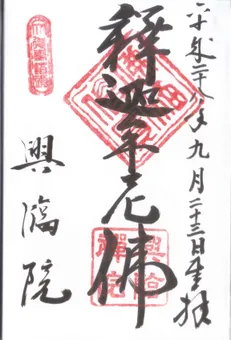 平成二十八年九月二十三日奉拝
釋迦牟尼佛
興臨院